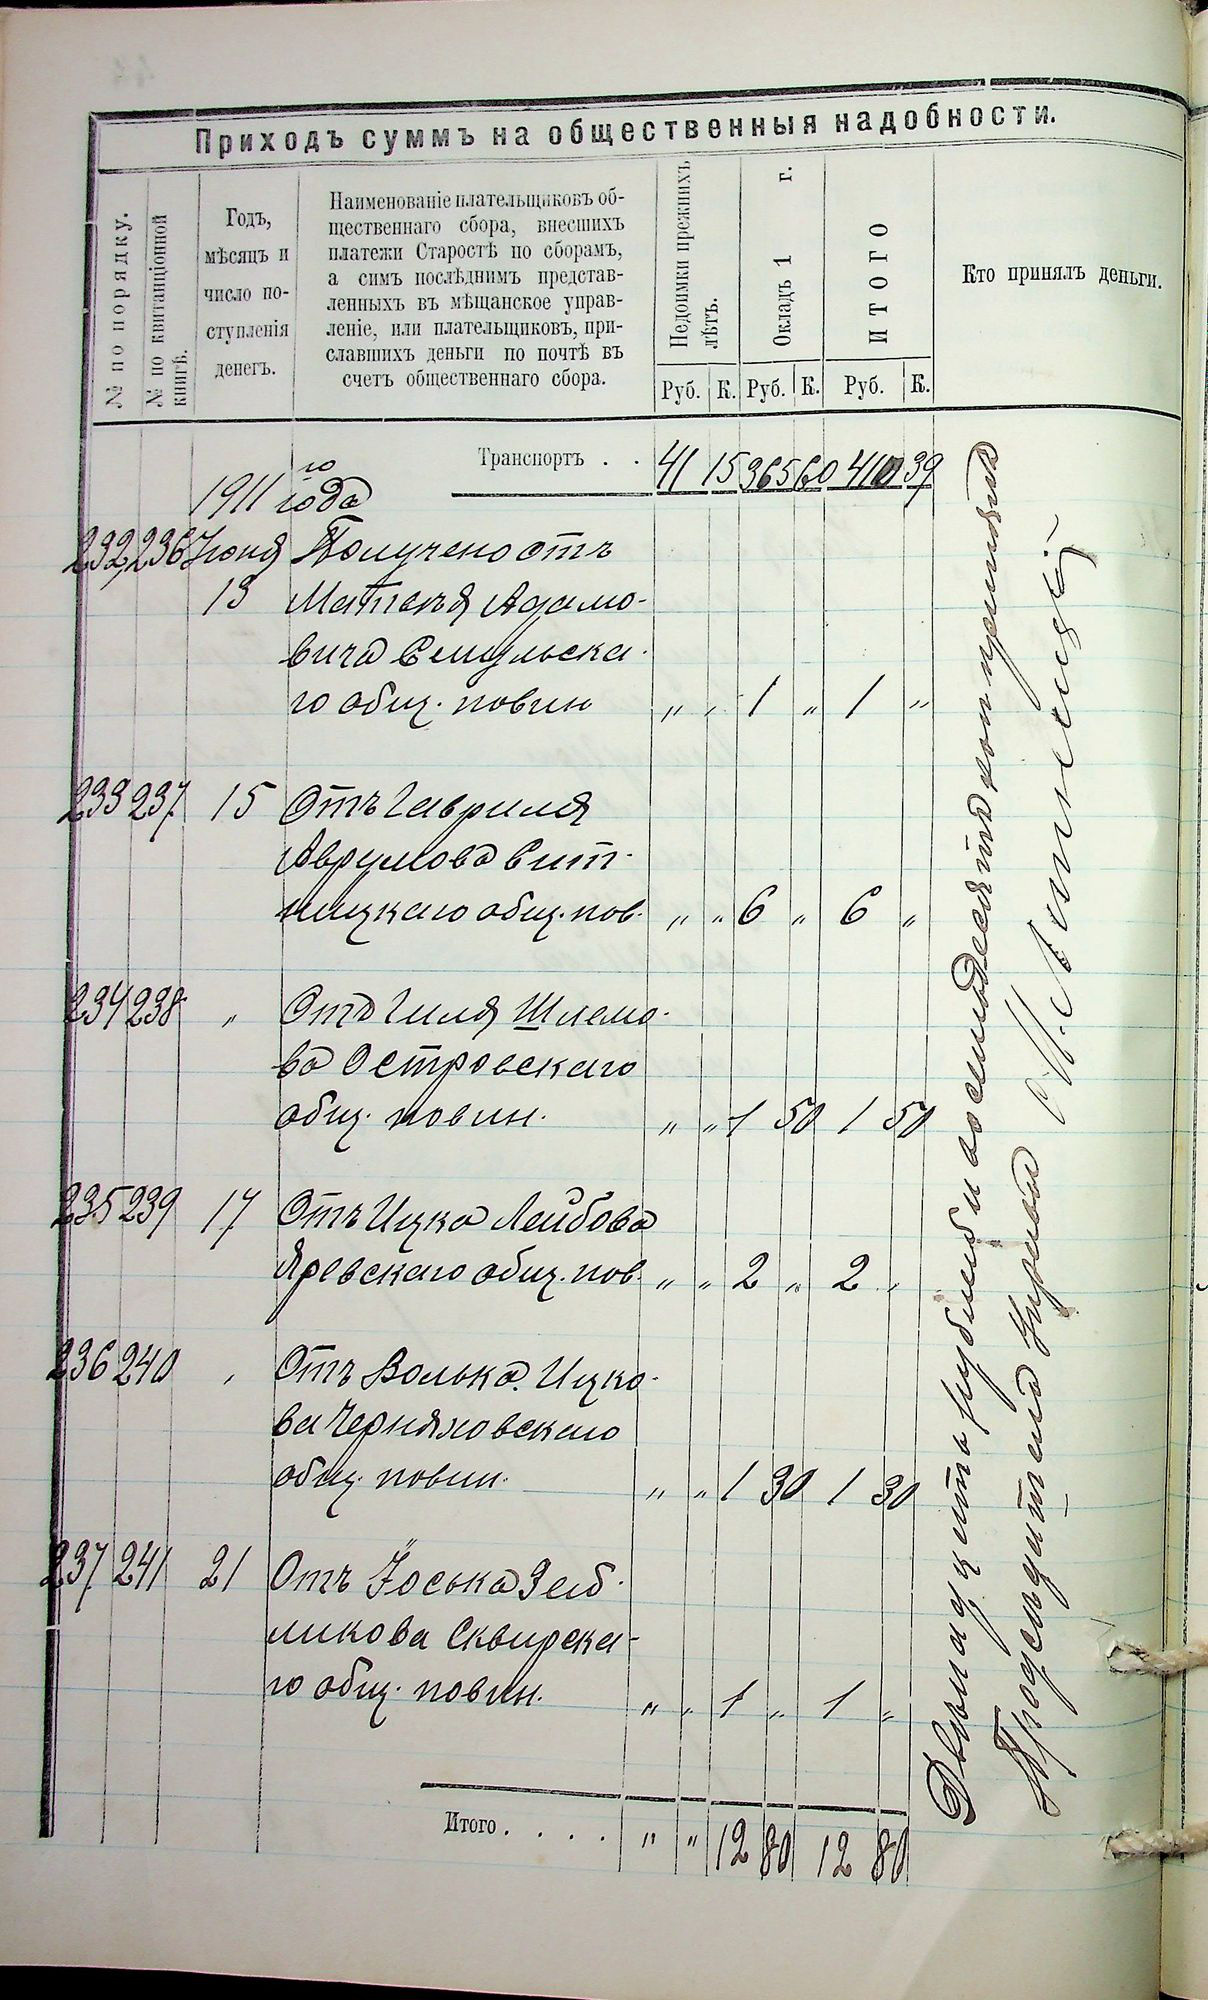 Приходъ суммъ на общественныя надобности.
№ по порядку.
№ по квитанціонной
книгѣ.
Годъ,
мѣсяцъ и
число по-
ступленія
денегъ.
Наименованіе плательщиковъ об-
щественнаго сбора, внесшихъ
платежи Старостѣ по сборамъ,
а симъ послѣднимъ представ-
ленныхъ въ мѣщанское управ-
леніе, или плательщиковъ, при-
славшихъ деньги по почтѣ въ
счетъ общественнаго сбора.
Недоимки прежнихъ
лѣтъ.
Окладъ 1 г.
ИТОГО
Кто принялъ деньги.
Руб. К. Руб. К. Руб. К.
Транспортъ . . 41 15 365 60 410 39
1911 го года
232 236 Іюня Получено отъ
13 Матвѣя Адамо-
вича
го общ. повин „ „ 1 „ 1 „
233 237 15 Отъ Гавриля
Аврумова Сит-
ницкаго общ. пов. „ „ 6 „ 6 „
234 238 „ Отъ Гиля Шлемо-
ва Островскаго
общ. повин. „ „ 1 50 1 50
235 239 17 Отъ Ицка Лейбова
Яревскаго общ. пов. „ „ 2 „ 2 „
236 240 „ Отъ Волька Ицко-
ва Черняховскаго
общ. повин. „ „ 1 30 1 30
237 241 21 Отъ Іоська Зей-
ликова Сквирска-
го общ. повин. „ „ 1 „ 1 „
Итого . . . . „ „ 12 80 12 80
Двѣнадцать рублей и восемьдесятъ коп принялъ
Предсѣдатель Управы